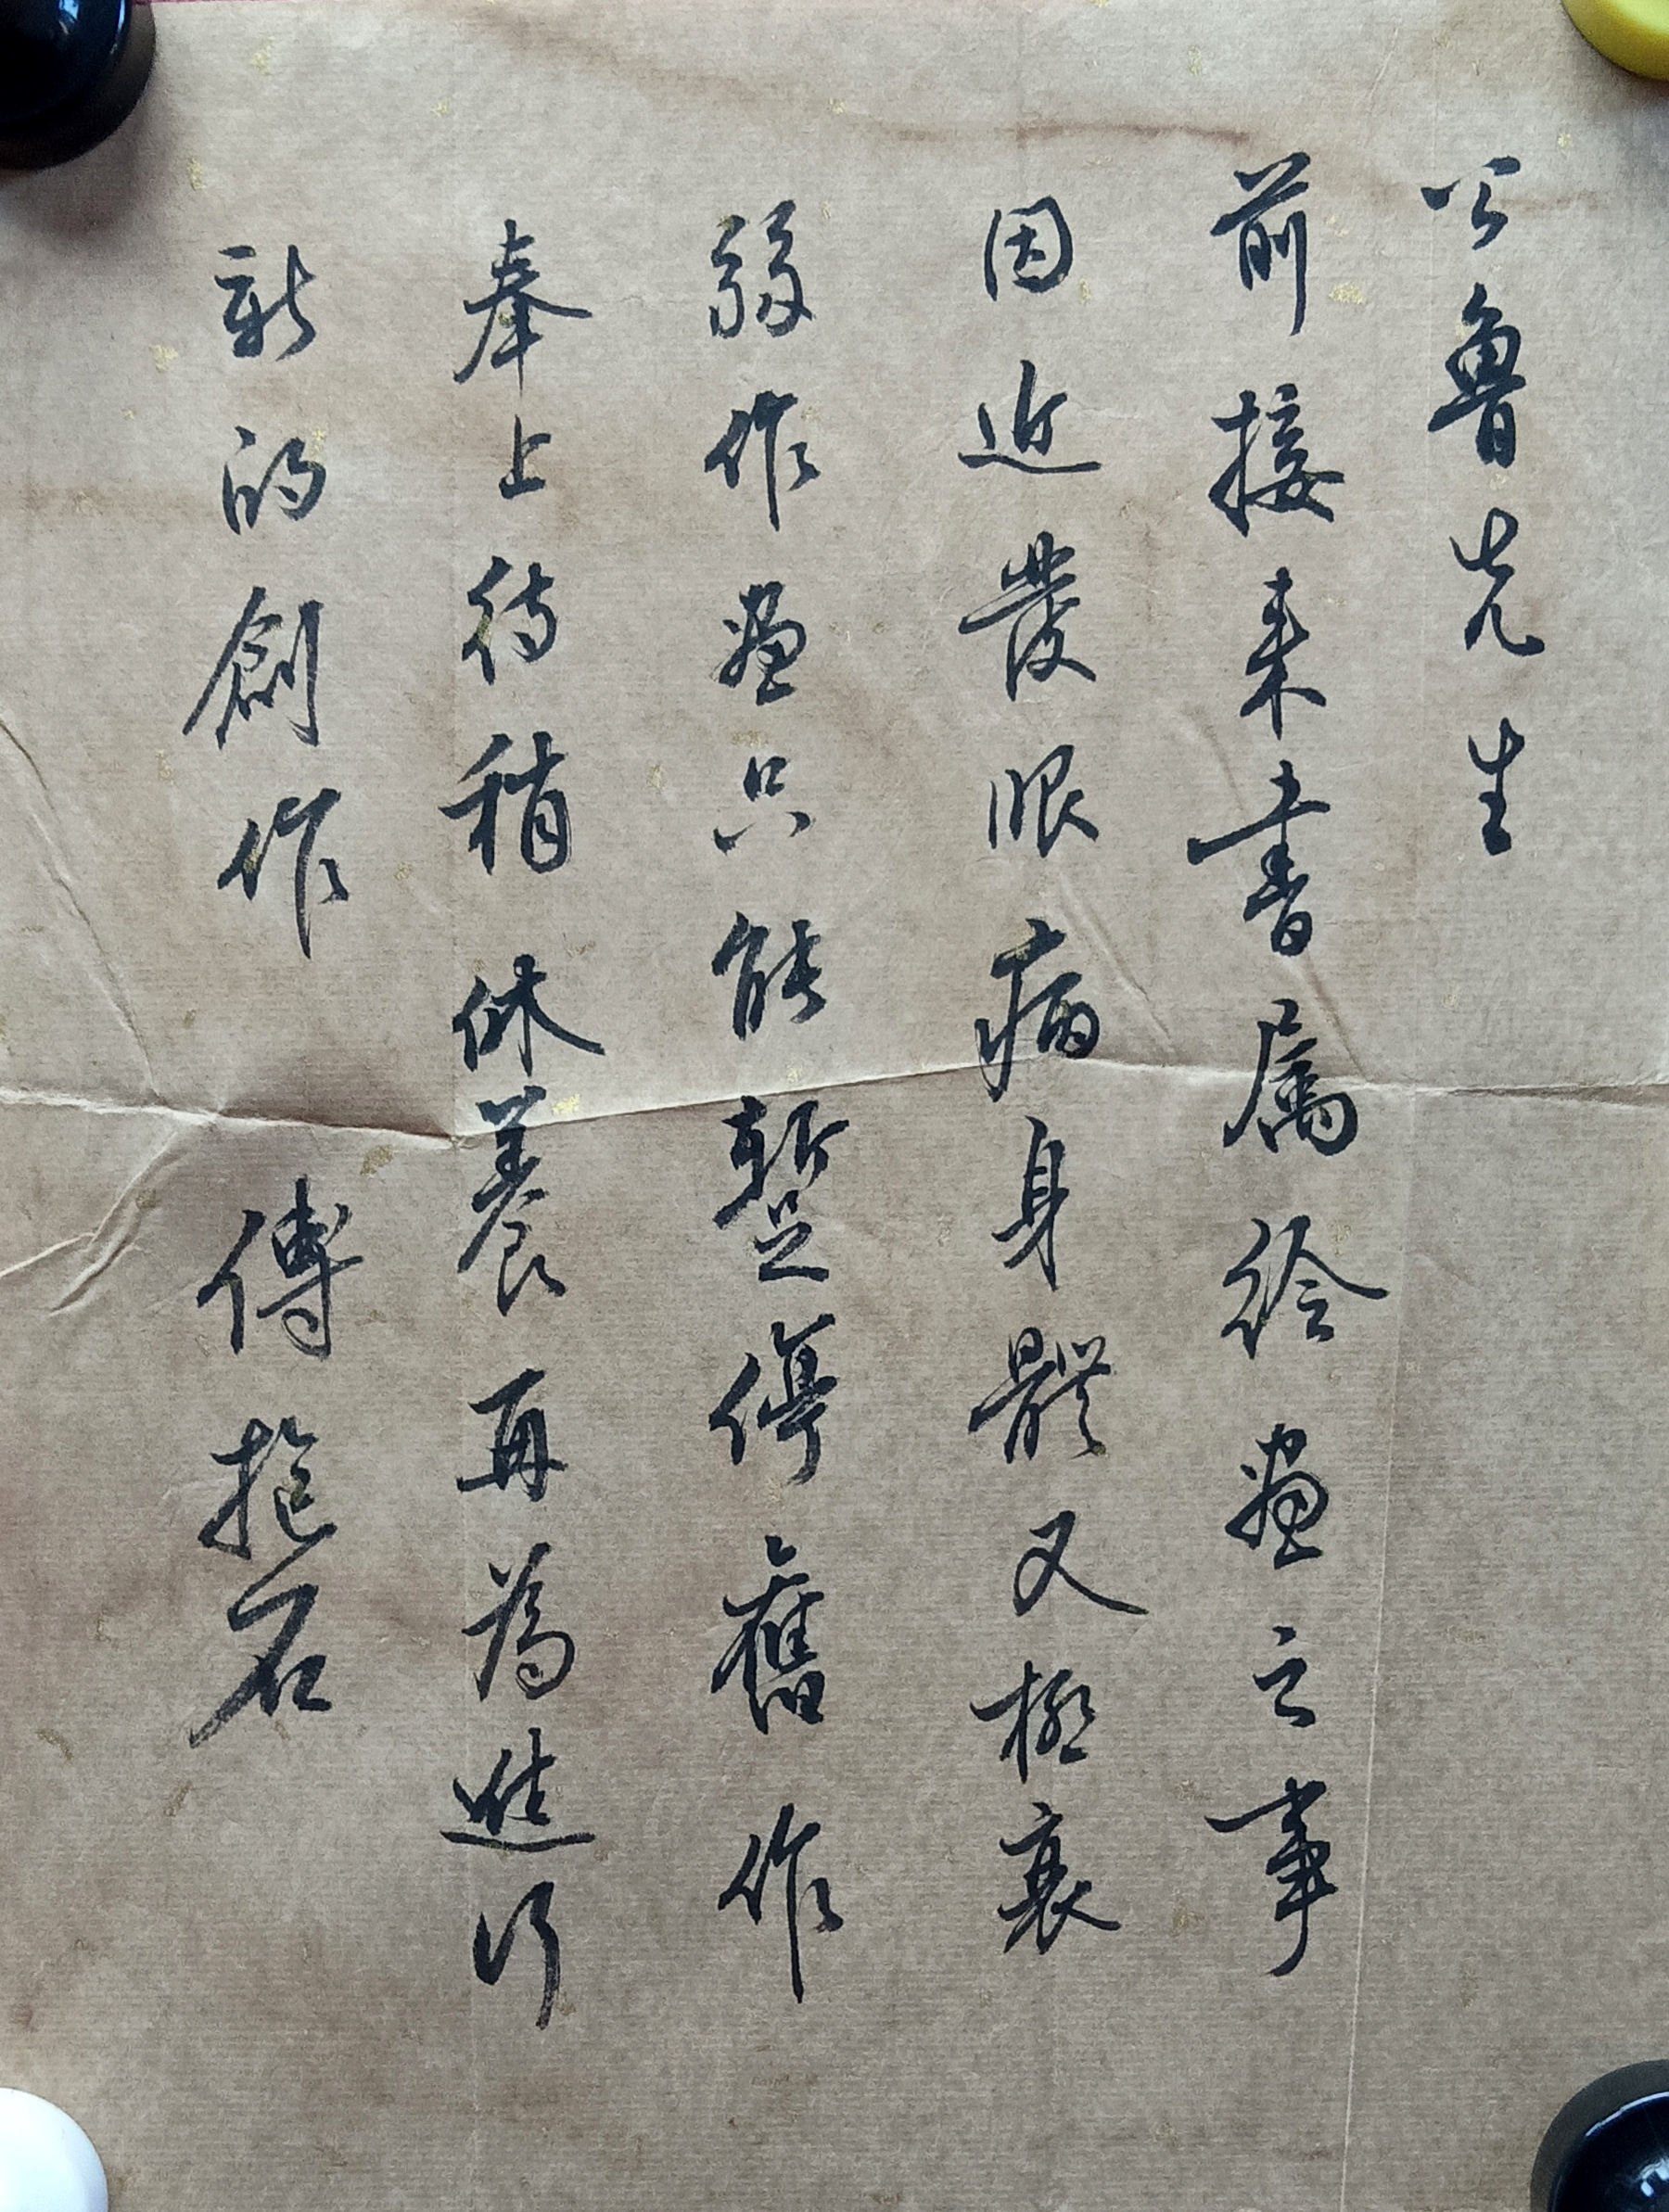 公魯先生
前接来書属绘畫之事
因近發眼病身體又極衰
弱作畫只能暫停舊作
奉上待稍休養再為進行
新的創作 傅抱石